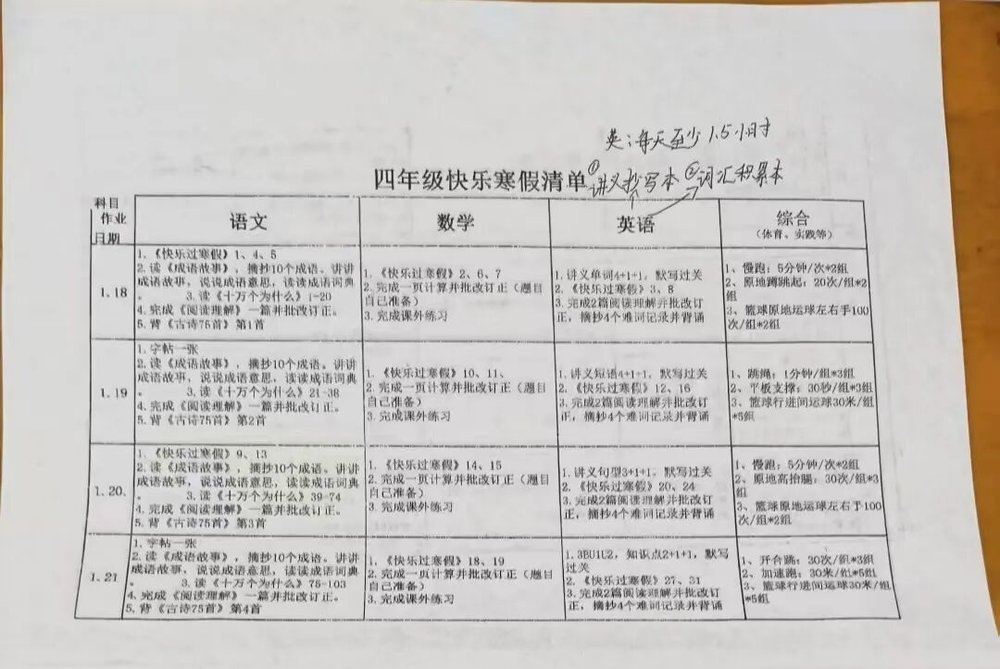 英：每天至少1.5小时
四年级快乐寒假清单 ①讲义抄写本 ②词汇积累本
科目
作业
日期
语文
数学
英语
综合
（体育、实践等）
1.18
1.《快乐过寒假》1、4、5
2.读《成语故事》，摘抄10个成语。讲讲
成语故事，说说成语意思，读读成语词典
。 3.读《十万个为什么》1-20
4.完成《阅读理解》一篇并批改订正。
5.背《古诗75首》第1首
1.《快乐过寒假》2、6、7
2.完成一页计算并批改订正（题目
自己准备）
3.完成课外练习
1.讲义单词4+1+1，默写过关
2.《快乐过寒假》3、8
3.完成2篇阅读理解并批改订
正，摘抄4个难词记录并背诵
1、慢跑：5分钟/次*2组
2、原地蹲跳起：20次/组*2
组
3、篮球原地运球左右手100
次/组*2组
1.19
1.字帖一张
2.读《成语故事》，摘抄10个成语。讲讲
成语故事，说说成语意思，读读成语词典
。 3.读《十万个为什么》21-38
4.完成《阅读理解》一篇并批改订正。
5.背《古诗75首》第2首
1.《快乐过寒假》10、11、
2.完成一页计算并批改订正（题目
自己准备）
3.完成课外练习
1.讲义短语4+1+1，默写过关
2.《快乐过寒假》12、16
3.完成2篇阅读理解并批改订
正，摘抄4个难词记录并背诵
1、跳绳：1分钟/组*3组
2、平板支撑：30秒/组*3组
3、篮球行进间运球30米/组
*5组
1.20.
1.《快乐过寒假》9、13
2.读《成语故事》，摘抄10个成语。讲讲
成语故事，说说成语意思，读读成语词典
。 3.读《十万个为什么》39-74
4.完成《阅读理解》一篇并批改订正。
5.背《古诗75首》第3首
1.《快乐过寒假》14、15
2.完成一页计算并批改订正（题目
自己准备）
3.完成课外练习
1.讲义句型3+1+1，默写过关
2.《快乐过寒假》20、24
3.完成2篇阅读理解并批改订
正，摘抄4个难词记录并背诵
1、慢跑：5分钟/次*2组
2、原地高抬腿：30次/组*3
组
3、篮球原地运球左右手100
次/组*2组
1.21
1.字帖一张
2.读《成语故事》，摘抄10个成语。讲讲
成语故事，说说成语意思，读读成语词典
。 3.读《十万个为什么》75-103
4.完成《阅读理解》一篇并批改订正。
5.背《古诗75首》第4首
1.《快乐过寒假》18、19
2.完成一页计算并批改订正（题目
自己准备）
3.完成课外练习
1.3BU1U2，知识点2+1+1，默写
过关
2.《快乐过寒假》27、31
3.完成2篇阅读理解并批改订
正，摘抄4个难词记录并背诵
1、开合跳：30次/组*3组
2、加速跑：30米/组*5组
3、篮球行进间运球30米/组
*5组